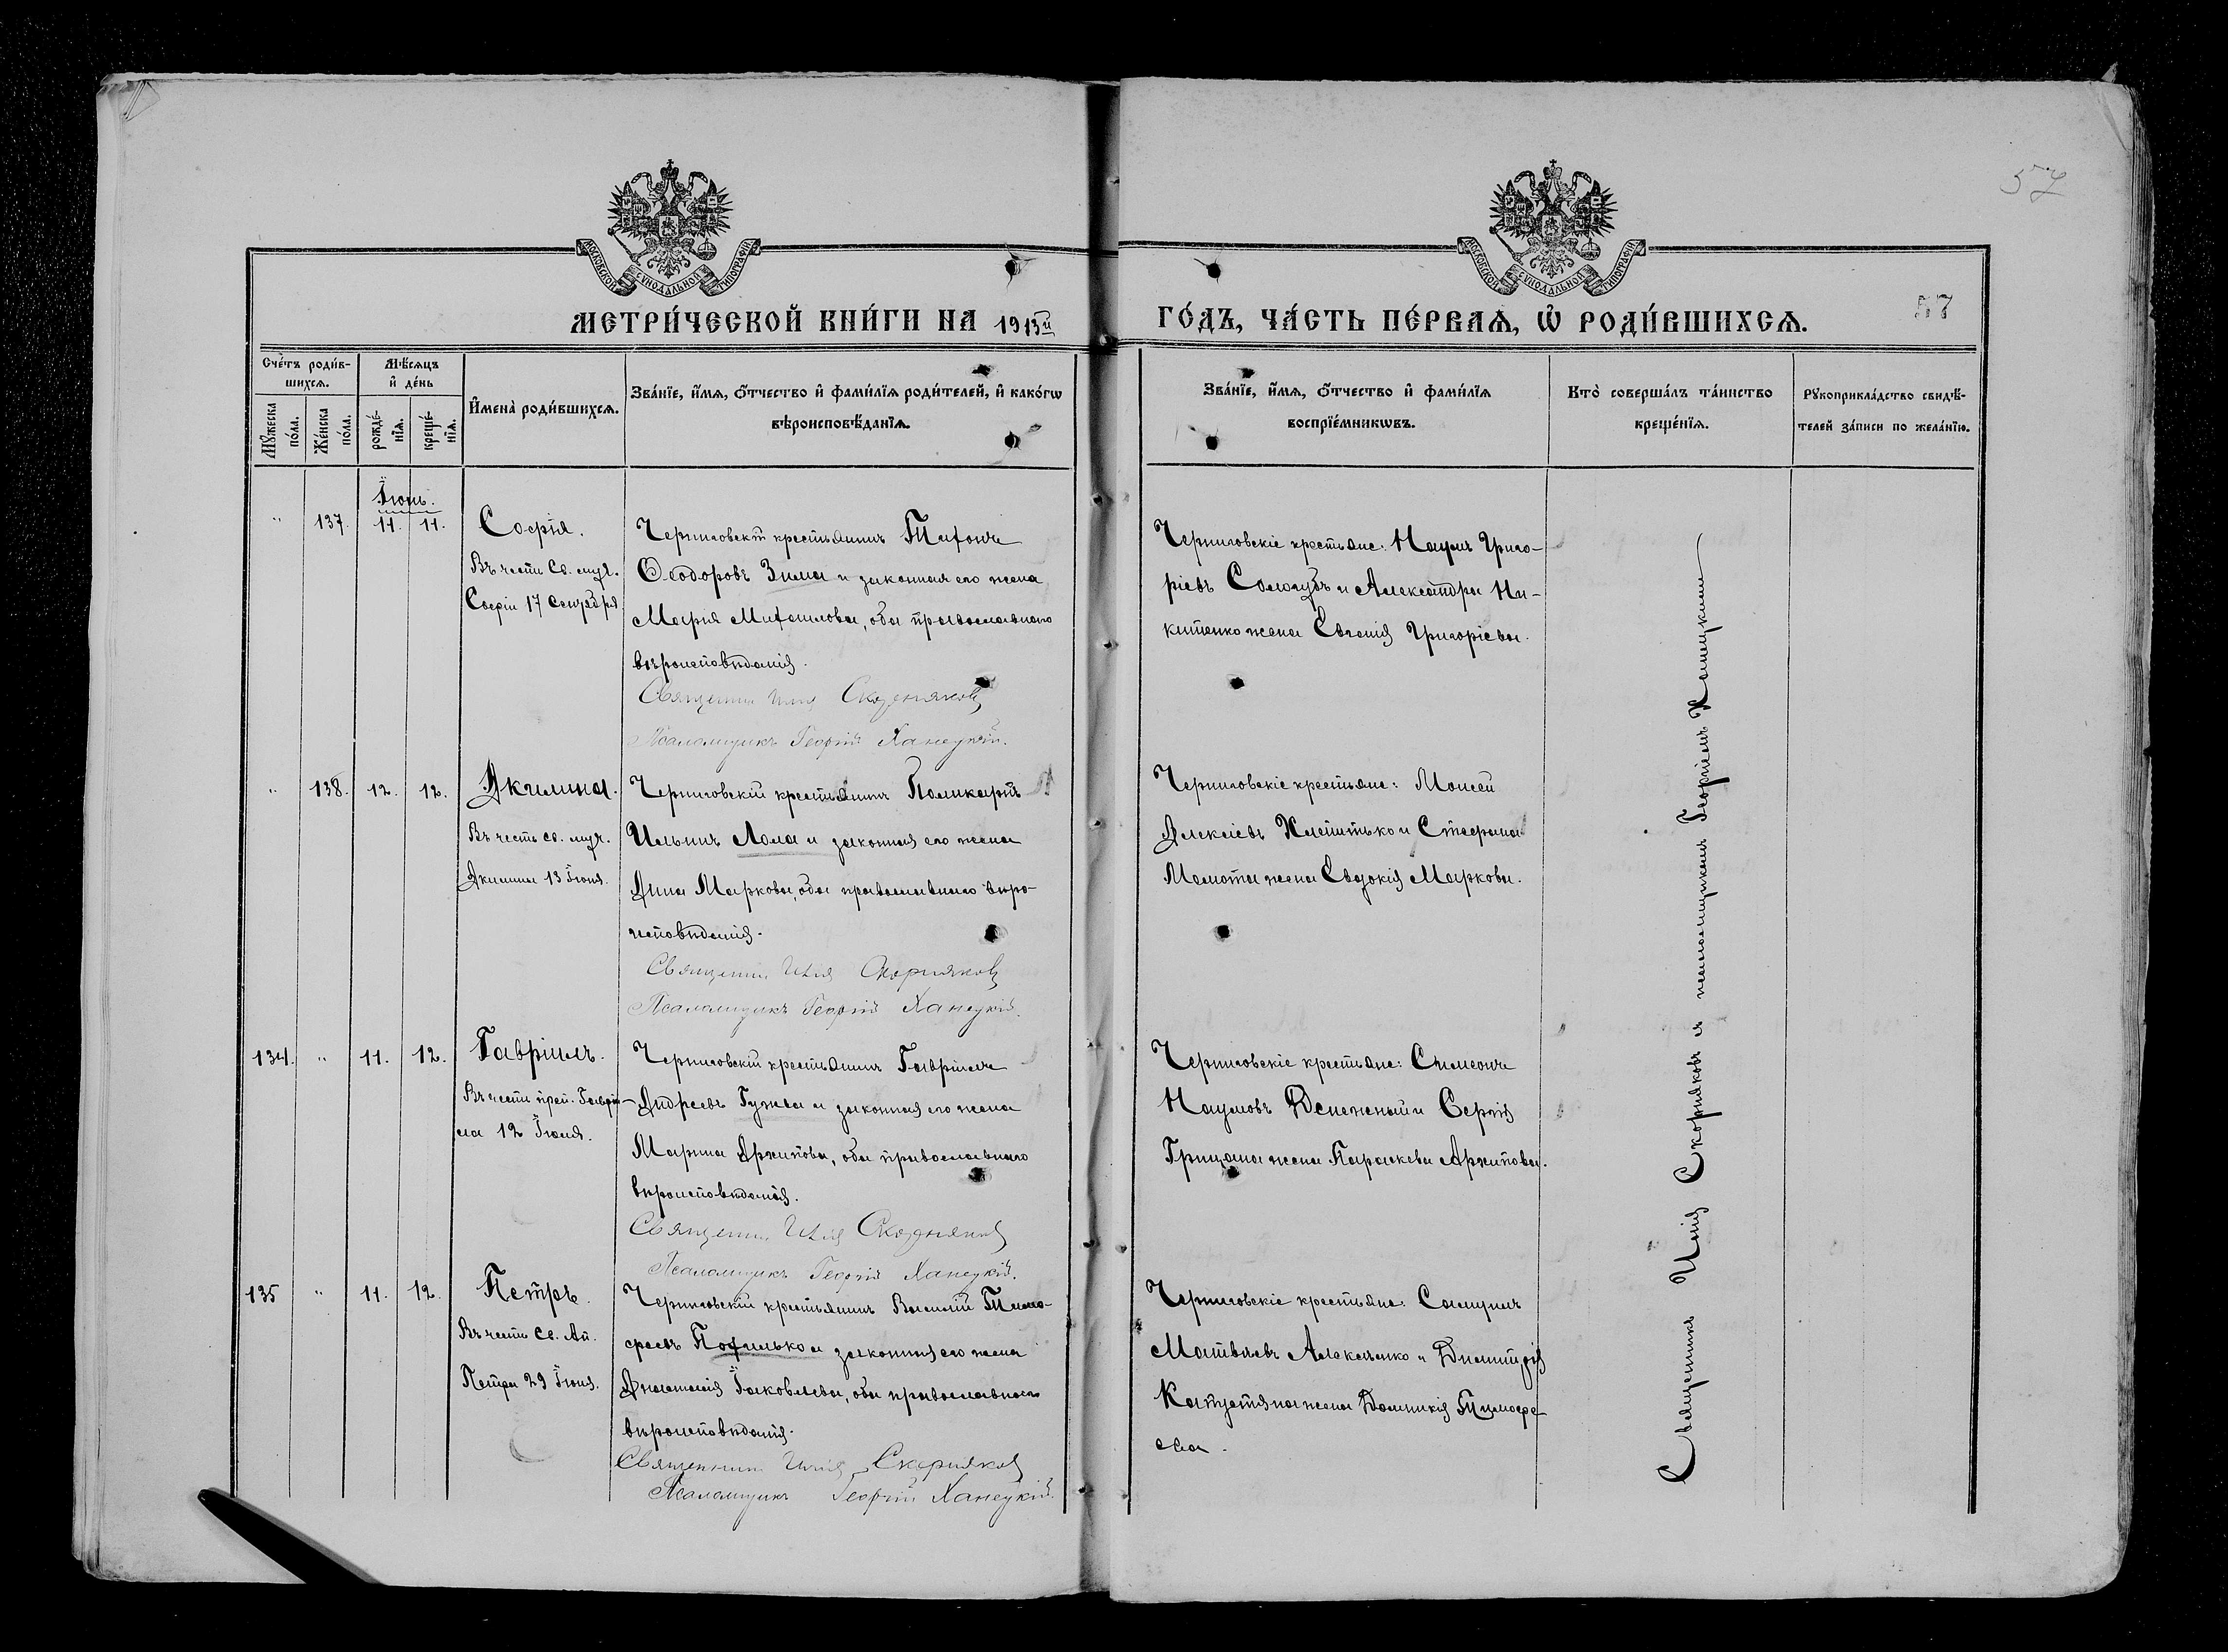 57
МОСКОВСКОЙ СѴНОДАЛЬНОЙ ТИПОГРАФІИ
МОСКОВСКОЙ СѴНОДАЛЬНОЙ ТИПОГРАФІИ
МЕТРИ́ЧЕСКОЙ КНИ́ГИ НА 1913й
ГО́ДЪ, ЧА́СТЬ ПЕ́РВАѦ, Ѡ҆ РОДИ́ВШИХСѦ.
57
Сче́тъ роди́в-
шихсѧ.
Мѣ́сѧцъ
и҆ де́нь
Мꙋ́жеска
по́ла.
Же́нска
по́ла.
рожде́-
нїѧ.
креще́-
нїѧ.
И҆мена̀ роди́вшихсѧ.
Зва́нїе, и҆́мѧ, ѻ҆́тчество и҆ фами́лїѧ роди́телей, и҆ како́гѡ
вѣроисповѣ́данїѧ.
Зва́нїе, и҆́мѧ, ѻ҆́тчество и҆ фами́лїѧ
воспрїе́мникѡвъ.
Кто̀ соверша́лъ та́инство
креще́нїѧ.
Рꙋкоприкла́дство свидѣ́-
телей за́писи по жела́нїю.
Іюнь.
" 137. 11. 11.
Софія.
Въ честь Св. муч.
Софіи 17 Сентября
Черниговскій крестьянинъ Тихонъ
Ѳеодоровъ Зима и законная его жена
Марія Михаилова, оба православнаго
вѣроисповѣданія.
Священник Илія Скорняковъ
Псаломщикъ Георгій Ханецкій.
Черниговскіе крестьяне: Наумъ Григо-
ріевъ Сологубъ и Александра Ни-
китенко жена Евгенія Григоріева.
" 138. 12. 12.
Акилина.
Въ честь св. муч.
Акилины 13 Іюня.
Черниговскій крестьянинъ Поликарпъ
Ильинъ Лола и законная его жена
Анна Маркова, оба православнаго вѣро-
исповѣданія.
Священник Илія Скорняковъ
Псаломщикъ Георгій Ханецкій.
Черниговскіе крестьяне: Моисей
Алексіевъ и Стефана
Мамота жена Евдокія Маркова.
134. " 11. 12.
Гавріилъ.
Въ честь преп. Гаврі-
ила 12 Іюля.
Черниговскій крестьянинъ Гавріилъ
Андреевъ Гужва и законная его жена
Марина Архипова, оба православнаго
вѣроисповѣданія.
Священник Илія Скорняковъ
Псаломщикъ Георгій Ханецкій.
Черниговскіе крестьяне: Симеонъ
Наумовъ Денежный и Сергія
Грицана жена Параскева Архипова.
135 " 11. 12.
Петръ.
Въ честь Св. Ап.
Петра 29 Іюня.
Черниговскій крестьянинъ Василій Тимо-
феевъ Похилько и законная его жена
Анастасія Іаковлева, оба православнаго
вѣроисповѣданія.
Священник Илія Скорняковъ
Псаломщикъ Георгій Ханецкій.
Черниговскіе крестьяне: Самуилъ
Матвѣевъ Алексѣенко и Димитрія
жена Домникія Тимофе-
ева.
Священникъ Илія Скорняковъ и псаломщикъ Георгіемъ Ханецкимъ